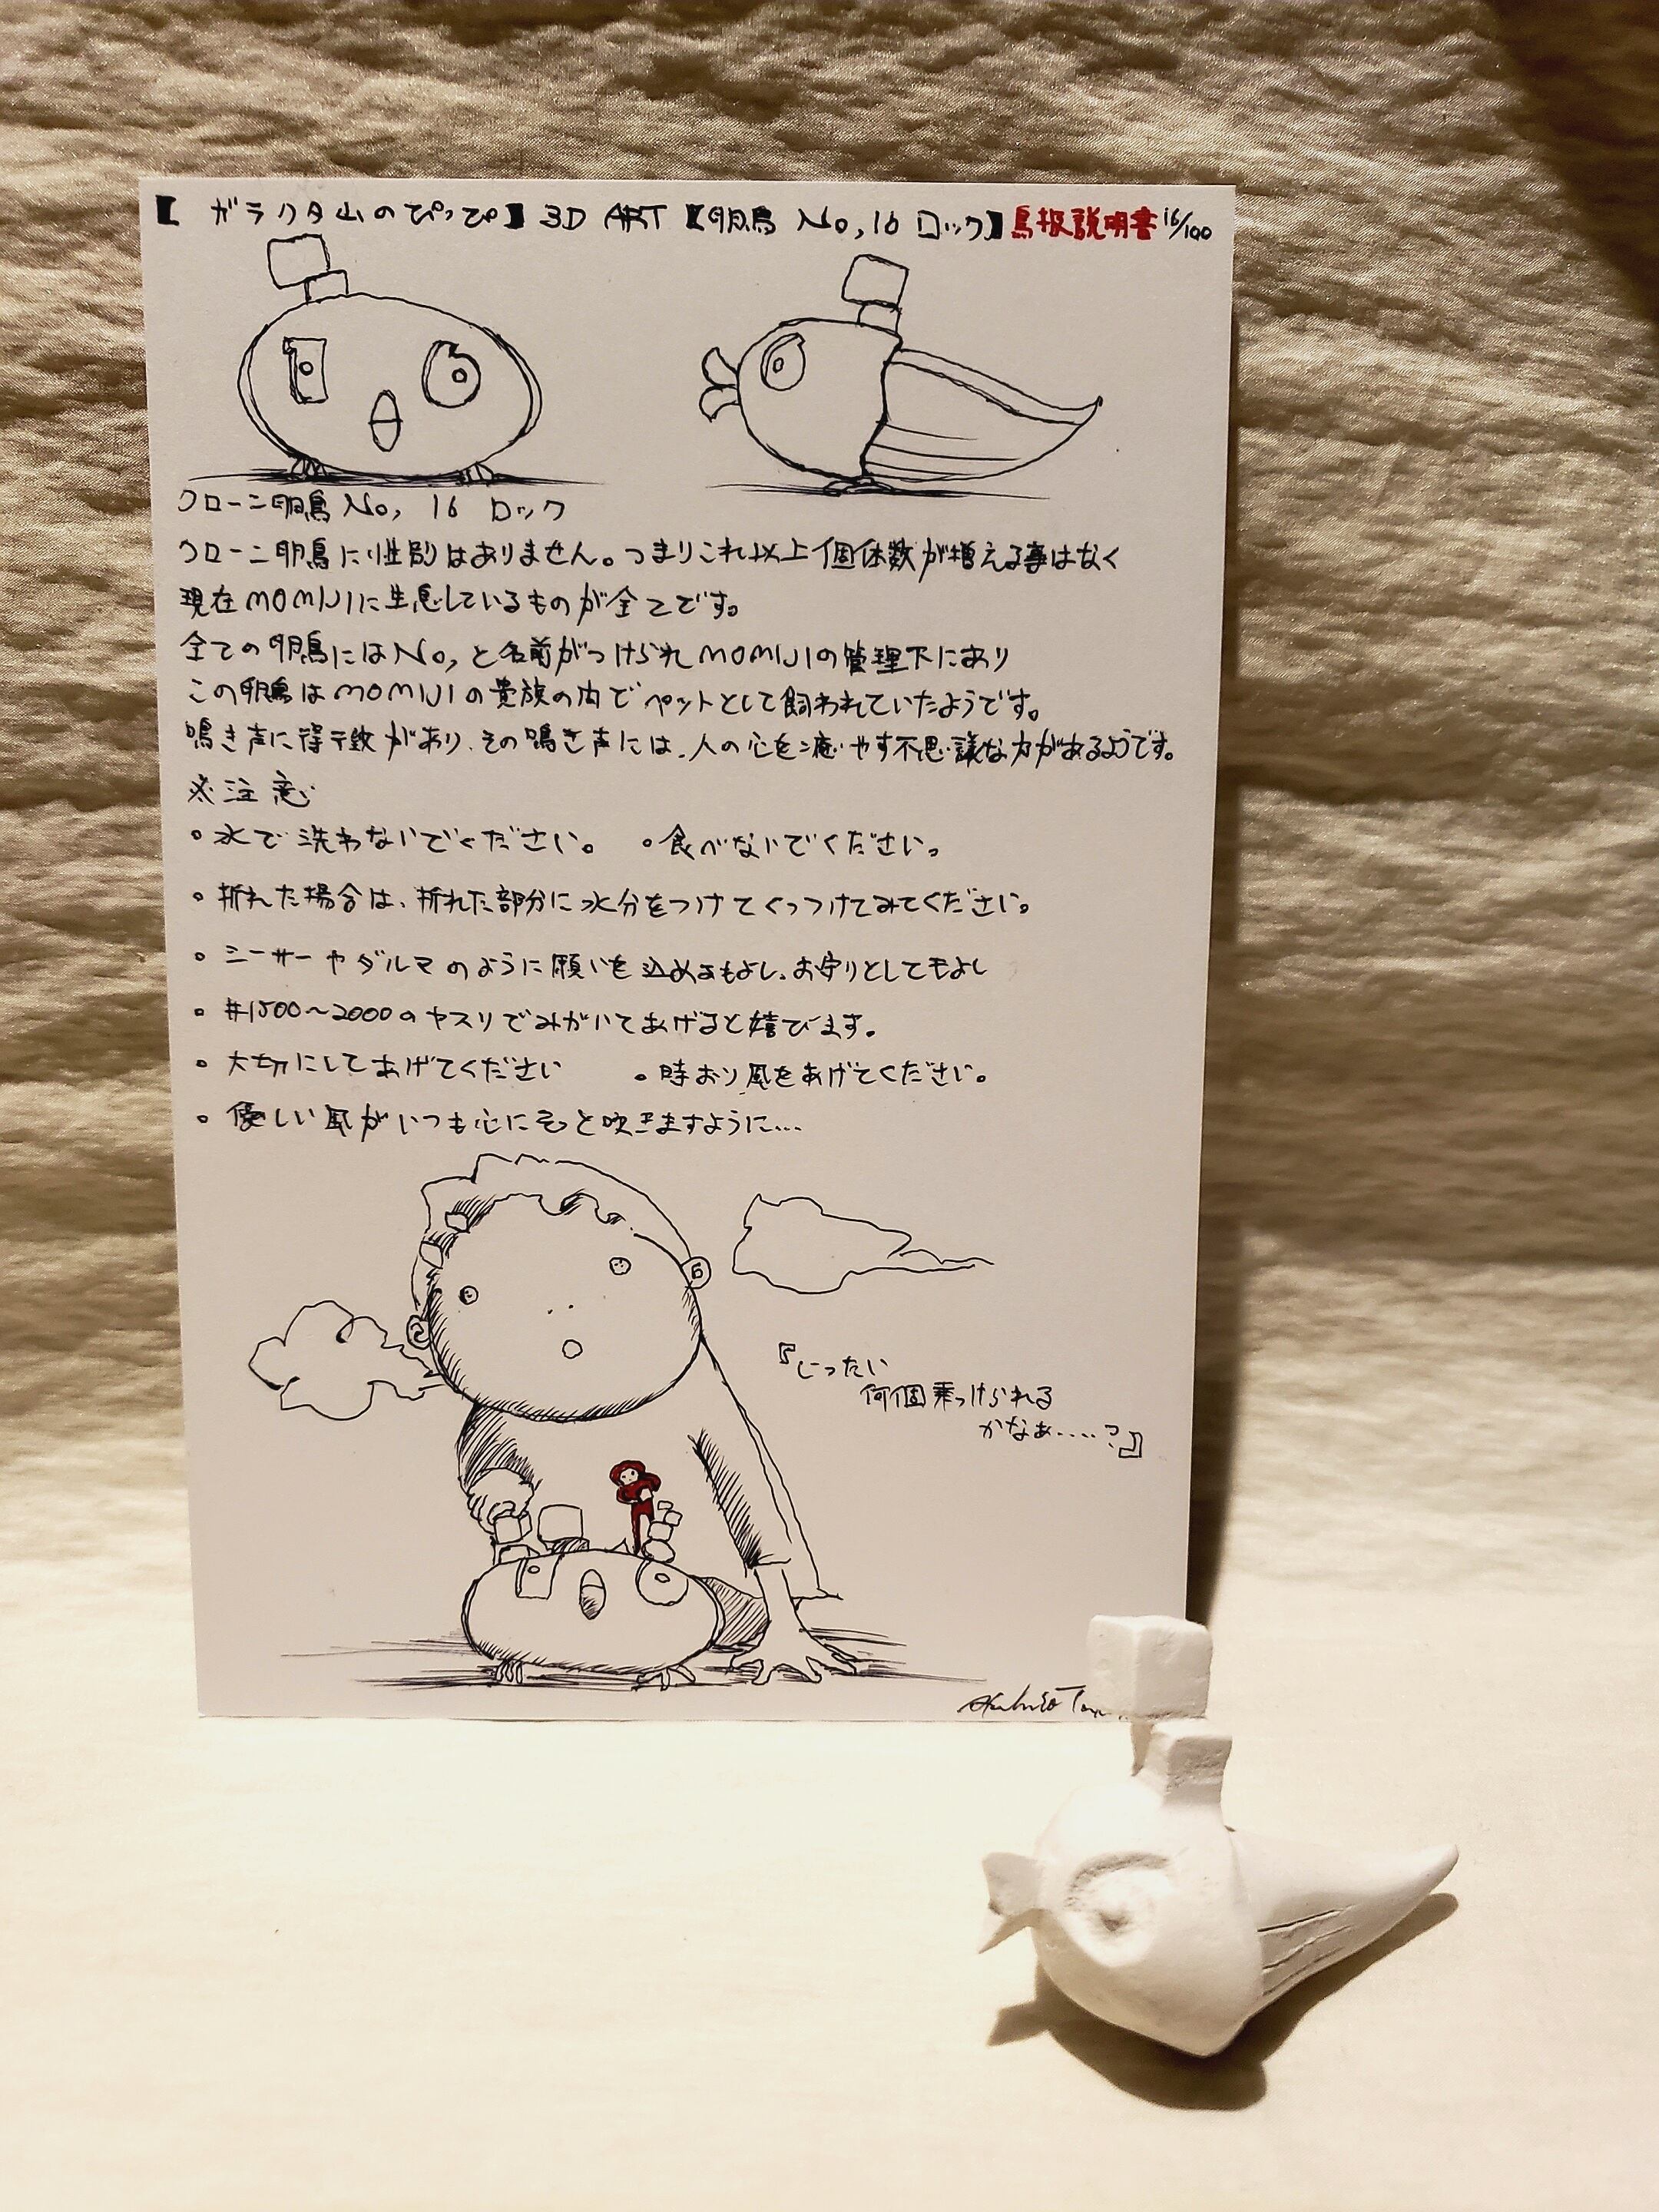 【ガラクタ山のぴっぴ】3D ART【卵鳥 No,16 ロック】鳥扱説明書 16/100
クローン卵鳥 No, 16 ロック
クローン卵鳥に性別はありません。つまりこれ以上個体数が増える事はなく
現在MOMIJIに生息しているものが全てです。
全ての卵鳥にはNo,と名前がつけられMOMIJIの管理下にあり
この卵鳥はMOMIJIの貴族の内でペットとして飼われていたようです。
鳴き声に特徴があり、その鳴き声には、人の心を癒やす不思議な力があるようです。
※注意
・水で洗わないでください。 ・食べないでください。
・折れた場合は、折れた部分に水分をつけてくっつけてみてください。
・シーサーやダルマのように願いを込めるもよし、お守りとしてもよし
・#1500〜2000のヤスリでみがいてあげると喜びます。
・大切にしてあげてください ・時おり風をあげてください。
・優しい風がいつも心にそっと吹きますように...
『いったい
何個乗っけられる
かなぁ....?』